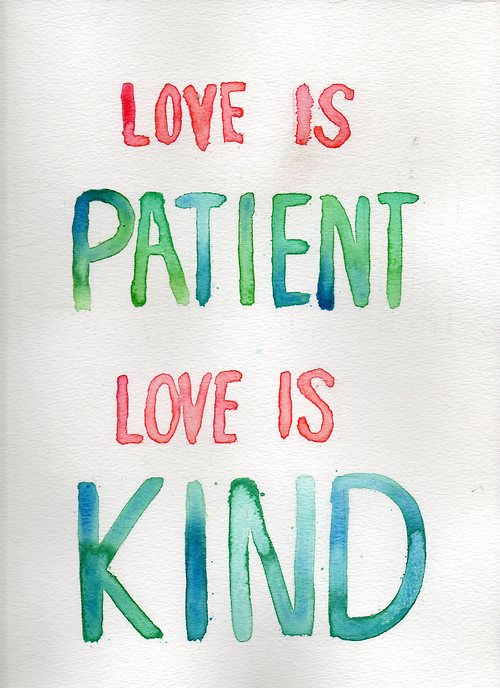 LOVE IS
PATIENT
LOVE IS
KIND